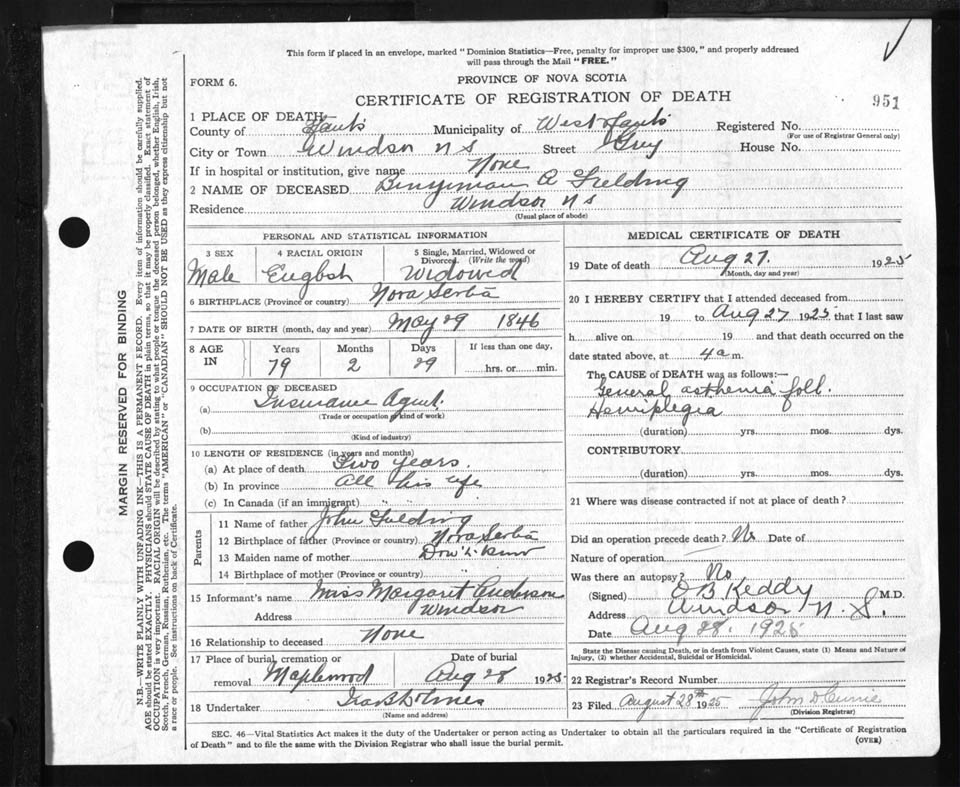 This form if placed in an envelope, marked "Dominion Statistics—Free, penalty for improper use $300," and properly addressed
will pass through the Mail "FREE."
FORM 6.
PROVINCE OF NOVA SCOTIA
CERTIFICATE OF REGISTRATION OF DEATH
951
1 PLACE OF DEATH
County of Hants Municipality of West Hants Registered No.
(For use of Registrar General only)
City or Town Windsor N S Street Grey House No.
If in hospital or institution, give name None
2 NAME OF DECEASED Benyiman A Fielding
Residence Windsor N S
(Usual place of abode)
PERSONAL AND STATISTICAL INFORMATION
3 SEX 4 RACIAL ORIGIN 5 Single, Married, Widowed or
Divorced. (Write the word)
Male English Widowed
6 BIRTHPLACE (Province or country) Nova Scotia
7 DATE OF BIRTH (month, day and year) May 29 1846
8 AGE IN Years Months Days If less than one day,
79 2 29 hrs. or min.
9 OCCUPATION OF DECEASED
(a) Insurance Agent.
(Trade or occupation or kind of work)
(b)
(Kind of industry)
10 LENGTH OF RESIDENCE (in years and months)
(a) At place of death Two years.
(b) In province all his life
(c) In Canada (if an immigrant) " "
Parents
11 Name of father John Fielding
12 Birthplace of father (Province or country) Nova Scotia
13 Maiden name of mother Don't know
14 Birthplace of mother (Province or country)
15 Informant's name Miss Margaret Anderson
Address Windsor
16 Relationship to deceased None
17 Place of burial, cremation or removal Maplewood
Date of burial Aug 28 1925
18 Undertaker
(Name and address)
MEDICAL CERTIFICATE OF DEATH
19 Date of death Aug 27. 1925
(Month, day and year)
20 I HEREBY CERTIFY that I attended deceased from
19 to Aug 27 1925, that I last saw
h alive on 19 and that death occurred on the
date stated above, at 4 a m.
The CAUSE OF DEATH was as follows:—
General asthenia foll.
Hemiplegia
(duration) yrs. mos. dys.
CONTRIBUTORY
(duration) yrs. mos. dys.
21 Where was disease contracted if not at place of death?
Did an operation precede death? No Date of
Nature of operation
Was there an autopsy? No
(Signed) O B Keddy M.D.
Address Windsor N. S.
Date Aug 28. 1925
State the Disease causing Death, or in death from Violent Causes, state (1) Means and Nature of
Injury, (2) whether Accidental, Suicidal or Homicidal.
22 Registrar's Record Number
23 Filed August 28th 1925 John D Currie
(Division Registrar)
SEC. 46—Vital Statistics Act makes it the duty of the Undertaker or person acting as Undertaker to obtain all the particulars required in the "Certificate of Registration
of Death" and to file the same with the Division Registrar who shall issue the burial permit.
(OVER)
MARGIN RESERVED FOR BINDING
N.B.—WRITE PLAINLY WITH UNFADING INK—THIS IS A PERMANENT RECORD. Every item of information should be carefully supplied.
AGE should be stated EXACTLY. PHYSICIANS should STATE CAUSE OF DEATH in plain terms, so that it may be properly classified. Exact statement of
OCCUPATION is very important. RACIAL ORIGIN will be described by stating to what people or tongue the deceased person belonged, whether English, Irish,
Scotch, French, German, Russian, Ruthenian, etc. The terms "AMERICAN" or "CANADIAN" SHOULD NOT BE USED as they express citizenship but not
a race or people. See instructions on back of Certificate.